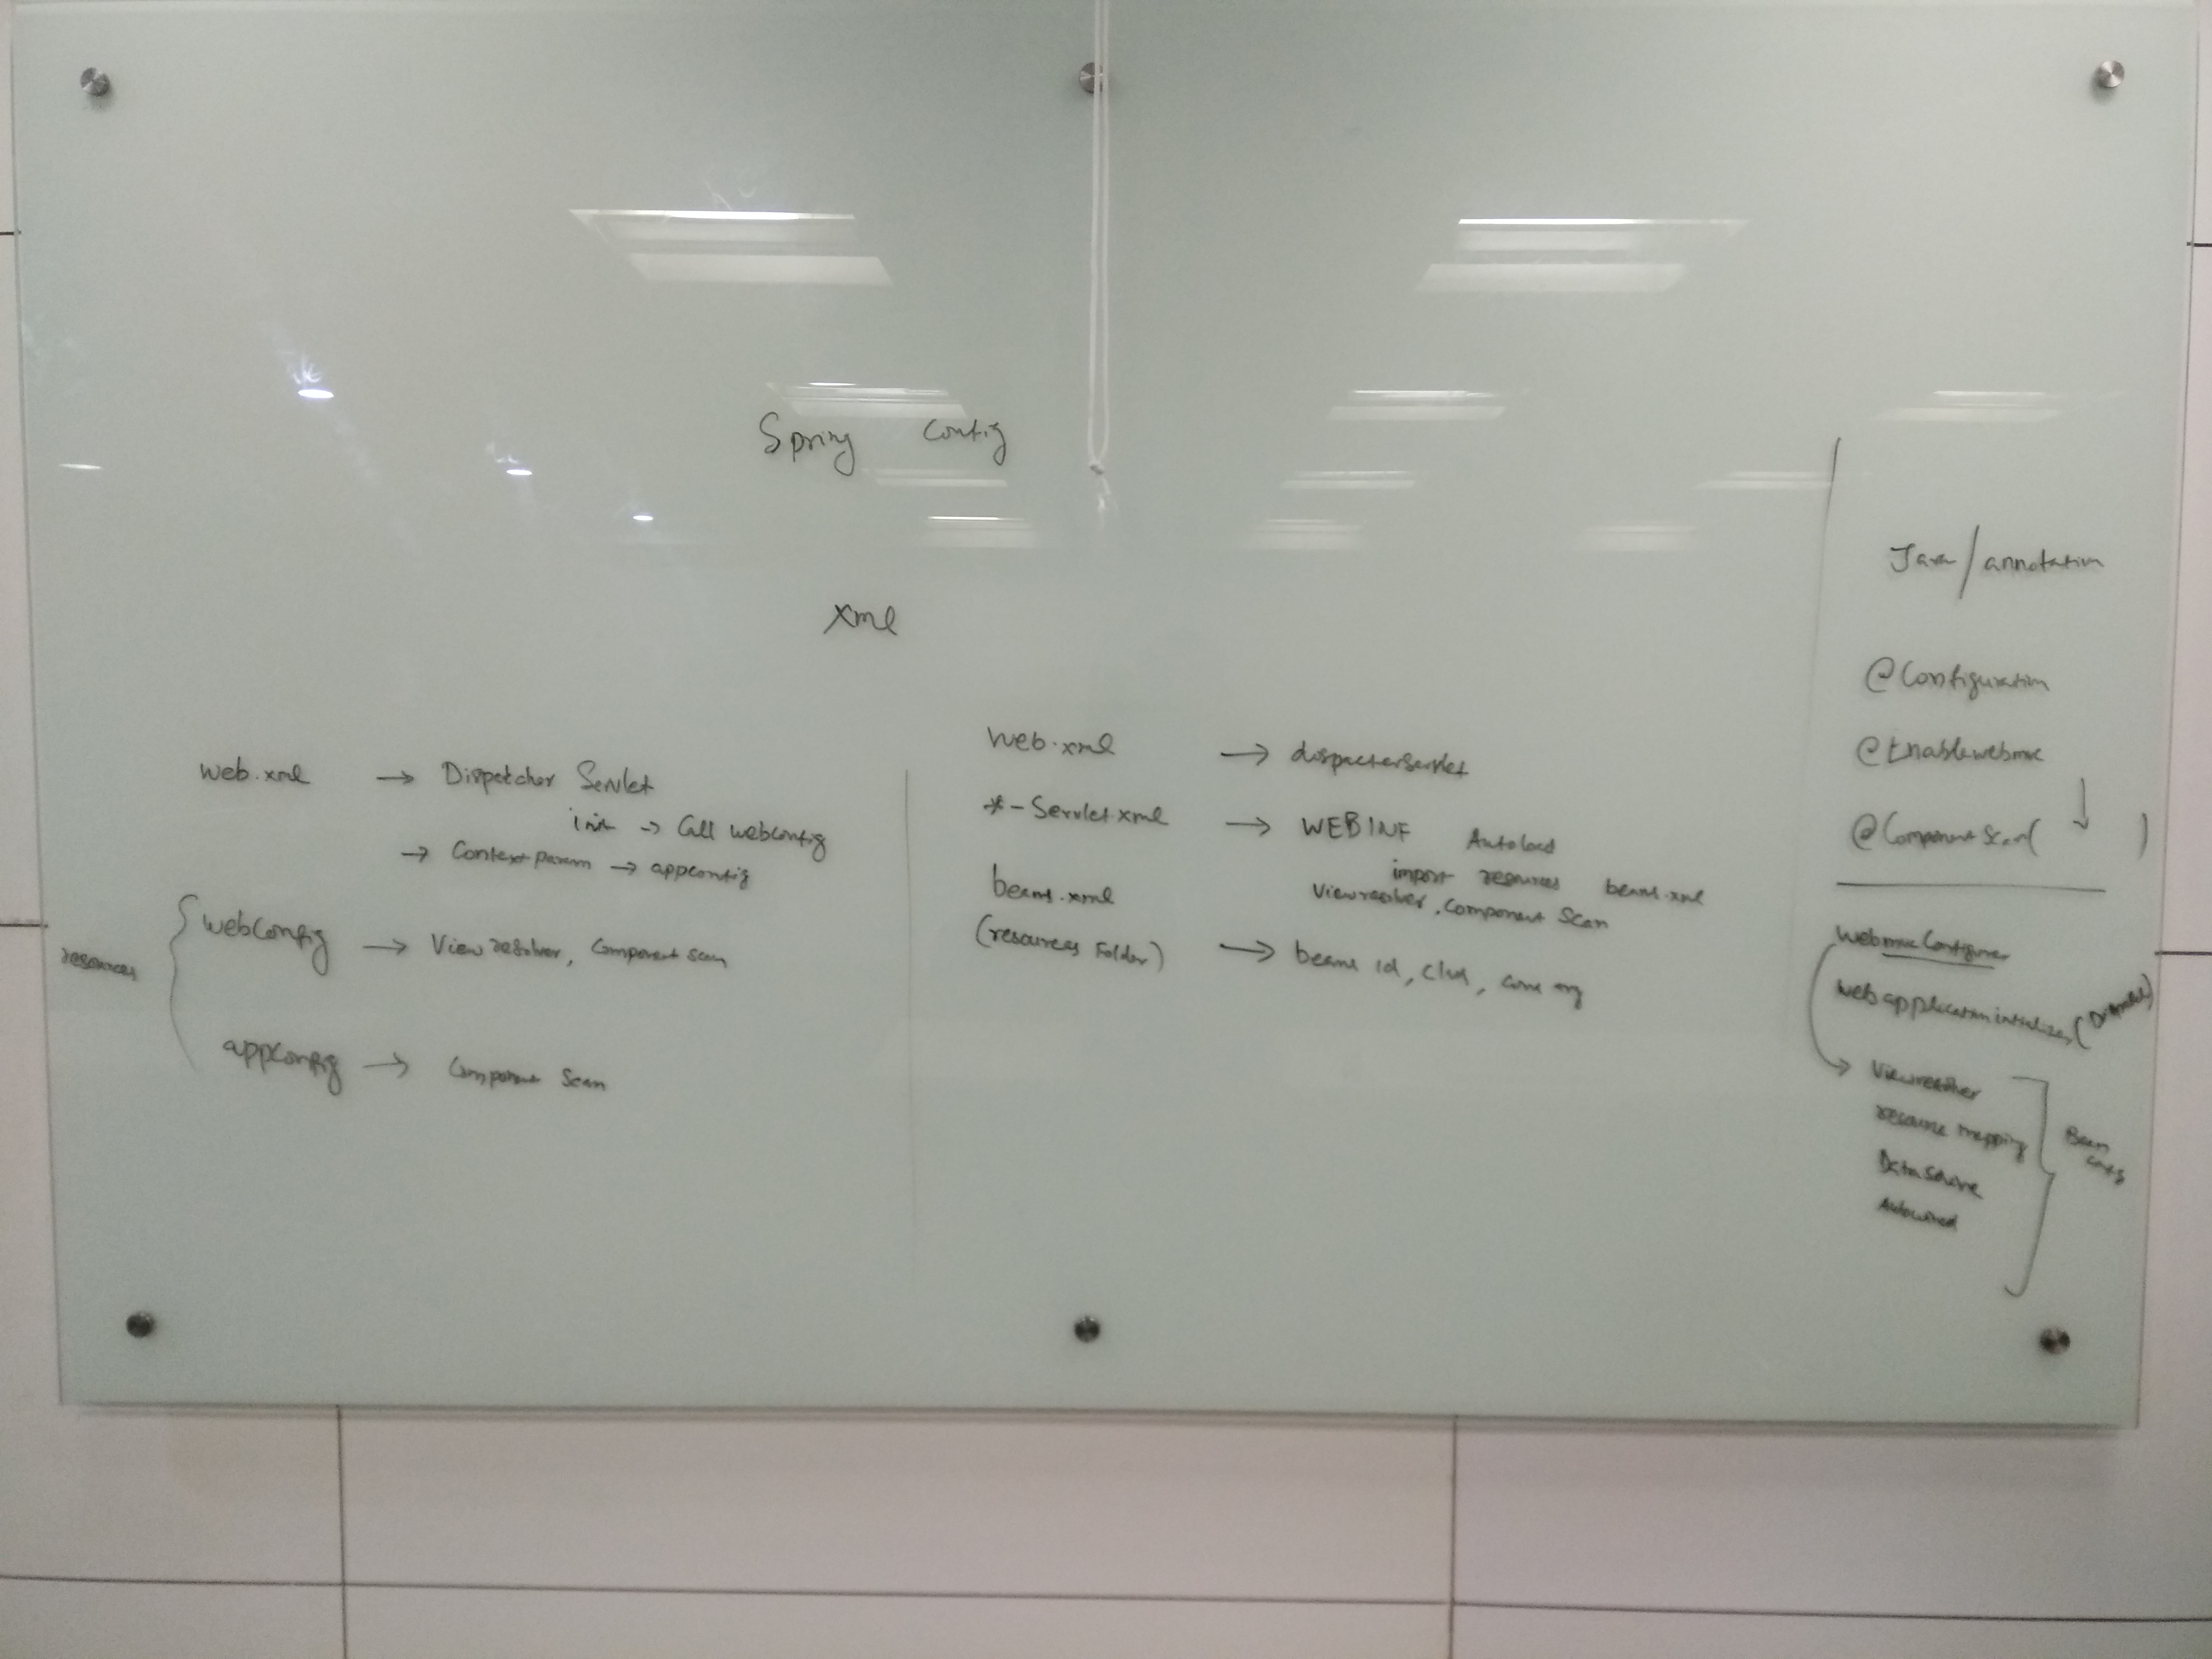 Spring Config
Xml
web.xml → Dispatcher Servlet
init → Call webconfig
→ Context param → appconfig
resources
webConfig → View resolver, Component scan
appConfig → Component Scan
web.xml → dispacterservlet
*-Servlet xml → WEBINF Autoload
import resources beans.xml
Viewresolver, Component Scan
beans.xml
(resources Folder) → beans id, class,
Java / annotation
@Configuration
@Enablewebmvc
↓
@ComponentScan( )
Webmvc Configurer
Webapplicationintializer(
→ Viewresolver
resource mapping
Data Source
Autowired
Bean